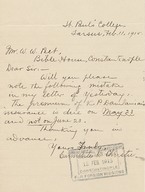 St. Paul's College
Tarsus, Feb. 11, 1910
Mr. W. W. Peet,
Bible House, Constantinople
Dear Sir:-
Will you please
note the following mistake
in my letter of yesterday.
The premium of
insurance is due on May 23
not on June
Thanking you in
advance.
Yours truly,